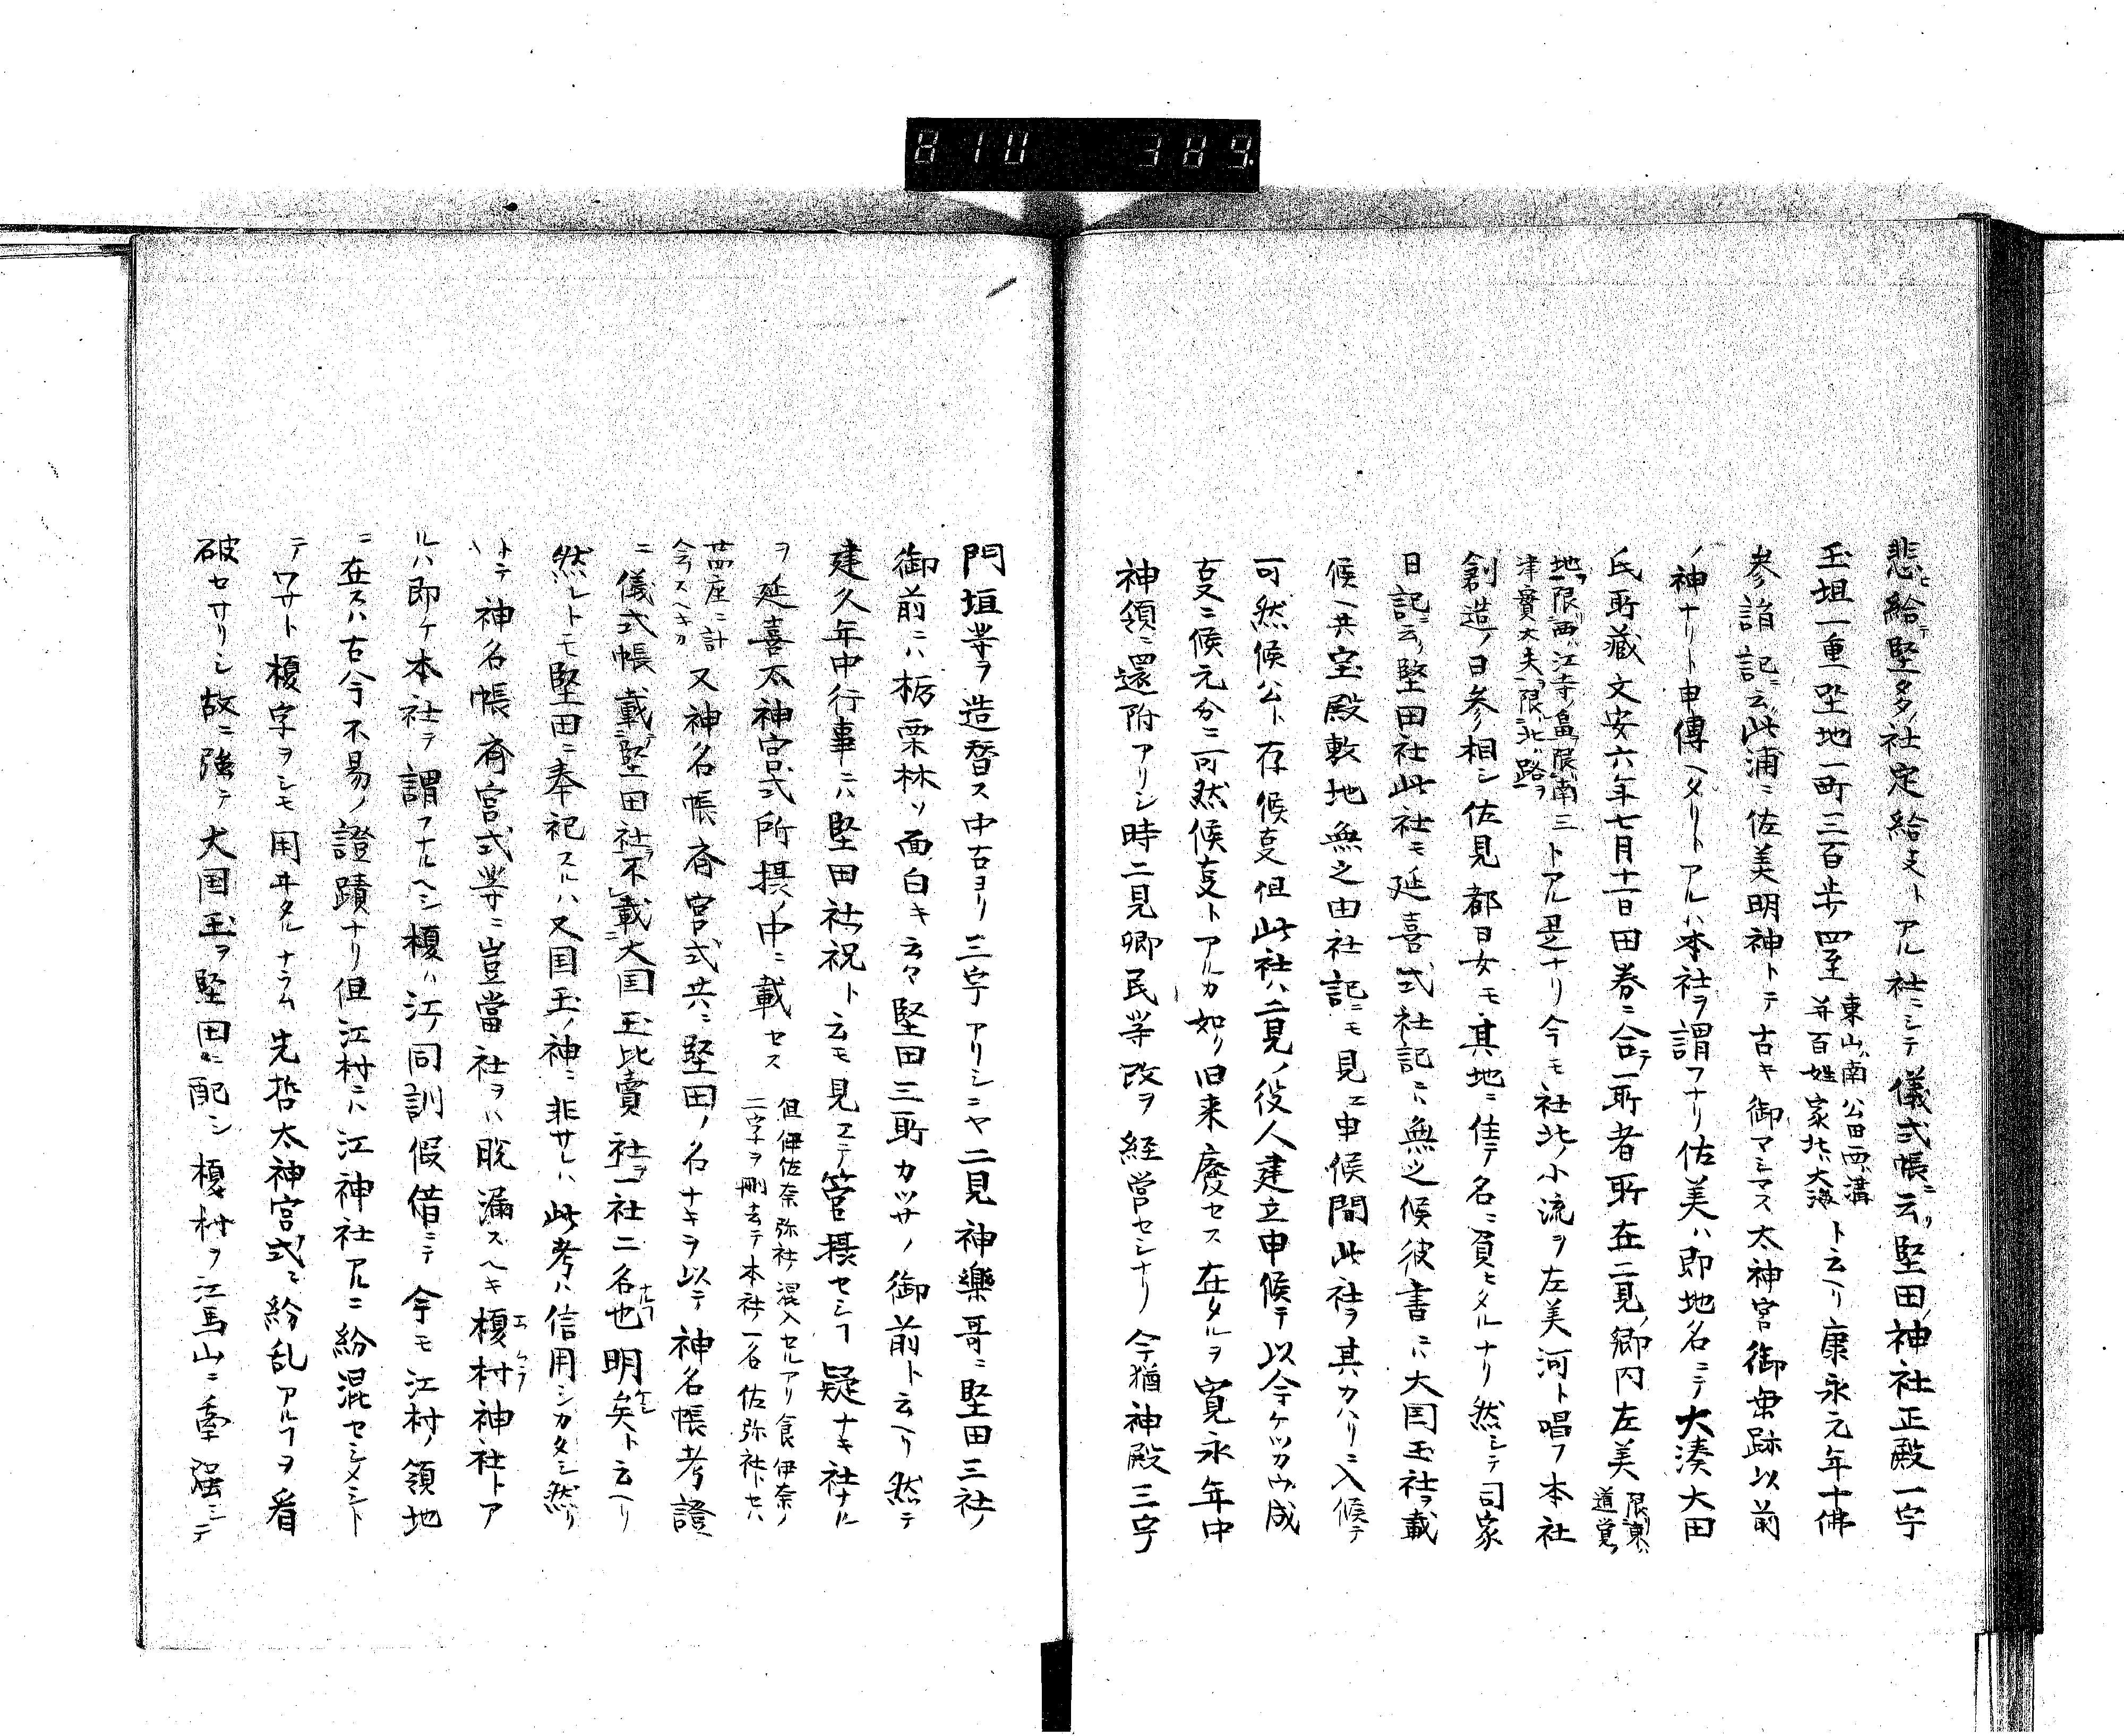 810 389
悲ヒ給テ堅多社定給支トアル社ニシテ儀式帳ニ云リ堅田ノ神社正殿一宇
玉垣一重坐地一町三百歩四至 東山南公田西溝
并百姓家北大海 ト云ヘリ康永元年十佛
参詣記ニ云此浦ニ佐美明神トテ古キ御マシマス太神宮御垂跡以前
ノ神ナリト申傳ヘタリトアルハ本社ヲ謂フナリ佐美ハ即地名ニテ大湊大田
氏所藏文安六年七月十一日田券ニ合テ一所者所在二見ノ郷内左美 限東ハ
道覚
地ヲ限西ハ江寺ノ畠ヲ限南
津實大夫ヲ限北ハ路ヲ 三トアル是ナリ今モ社北ノ小流ヲ左美河ト唱フ本社
創造ノ日参リ相シ佐見都日女モ其地ニ佳テ名ニ負ヒタルナリ然シテ司家
日記ニ云リ堅田社此社モ延喜式社記ニハ無之候彼書ニハ大国玉社ヲ載
候ヘ共宝殿敷地無之由社記ニモ見エ申候間此社ヲ其カハリニ入候テ
可然候公ト存候叓但此社ハ二見ノ役人建立申候テ以今ケツカウ成
叓ニ候元分ニ可然候叓トアルカ如リ旧来廢セス在タルヲ寛永年中
神領ニ還附アリシ時二見郷民等改ヲ経営セシナリ今猶神殿三宇
門垣等ヲ造替ス中古ヨリ三宇アリシニヤ二見神樂哥ニ堅田三社ノ
御前ニハ栃栗林ソ面白キ云々堅田三所カツサノ御前ト云ヘリ然テ
建久年中行事ニハ堅田社祝ト云モ見エテ管摂セシ𪜈疑ナキ社ナル
ヲ延喜太神宮式所摂ノ中ニ載セス 但伊佐奈弥社ノ混入セルアリ食伊奈ノ
二字ヲ刪去テ本社一名佐弥社トセハ
廿四座ニ計
今スヘキカ 又神名帳斎宮式共ニ堅田ノ名ナキヲ以テ神名帳考證
ニ儀式帳載堅田社ヲ不載大国玉比賣社ヲ一社二名也明矣ト云ヘリ
然レトモ堅田ニ奉祀スルハ又国玉ノ神ニ非サレハ此考ハ信用シカタシ然リ
トテ神名帳斎宮式等ニ豈當社ヲハ脱漏スヘキ榎村神社トア
ルハ即ケ本社ヲ謂フナルヘシ榎ハ江ノ同訓假借ニテ今モ江村ノ領地
ニ在スハ古今不易ノ證蹟ナリ但江村ニハ江神社アルニ紛混セシメシト
テワサト榎字ヲシモ用ヰタルナラム先哲太神宮式ニ紛乱アルヿヲ看
破セサリシ故ニ強テ大国玉ヲ堅田ニ配シ榎村ヲ江馬山ニ牽強シテ